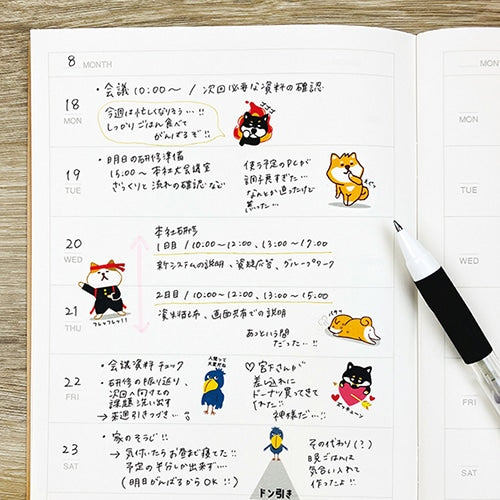 8 MONTH
MONTH
18 MON
・会議 10:00〜 / 次回必要な資料の確認
今週は忙しくなりそう…!!
しっかりごはん食べて
がんばるぞ!!
19 TUE
・明日の研修準備
15:00〜 本社大会議室
ざらっくりと流れの確認など
使う予定のPCが
調子悪すぎた…
なんとか直ったけど
焦った…
20 WED
本社研修
1日目 / 10:00〜12:00、13:00〜17:00
新システムの説明、質疑応答、グループワーク
フレッフレッ!!
21 THU
2日目 / 10:00〜12:00、13:00〜15:00
資料配布、画面共有での説明
あっという間
だった…!!
22 FRI
・会議資料チェック
・研修の振り返り、
次回へ向けての
課題洗い出す
→来週引きつづき…
人間って
大変だね
♡宮下さんが
差し入れに
ドーナツ買ってきて
くれた!!
神様だ…!!
ズッキューン
23 SAT
・家のそうじ!!
→気付いたらお昼まで寝てた!!
予定の半分しか出来ず…
(明日がんばるからOK!!)
ドン引き
その代わり(?)
晩ごはんは
気合い入れて
作ったよ!